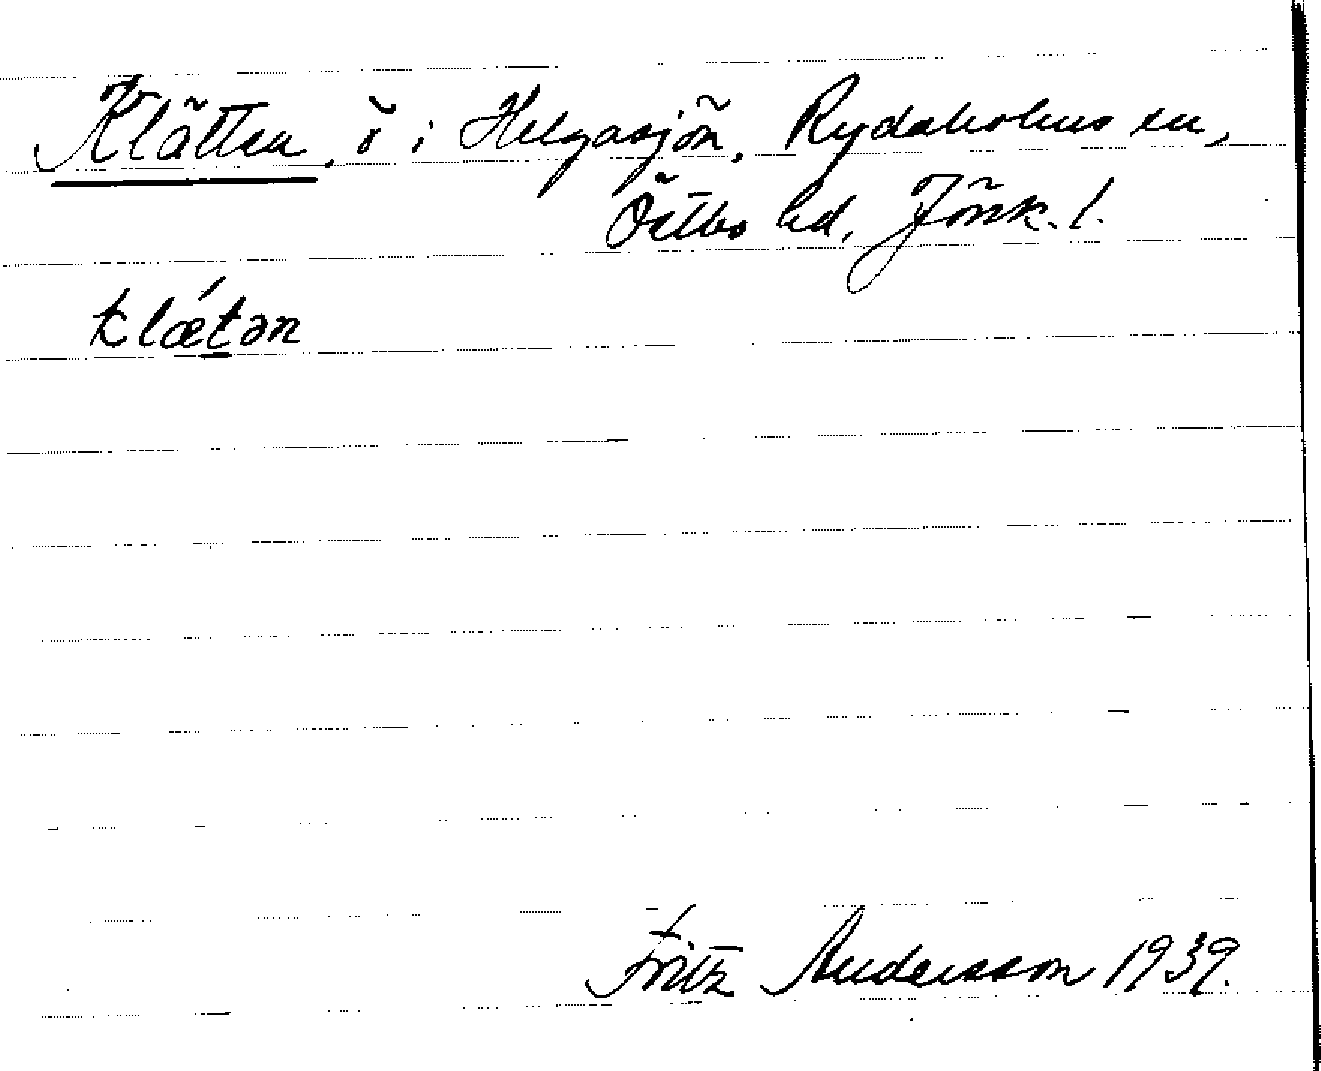 Klätten, ö i Helgasjön, Rydaholms sn,
Östbo hd, Jönk. l.
klǽtən
Fritz Andersson 1939.